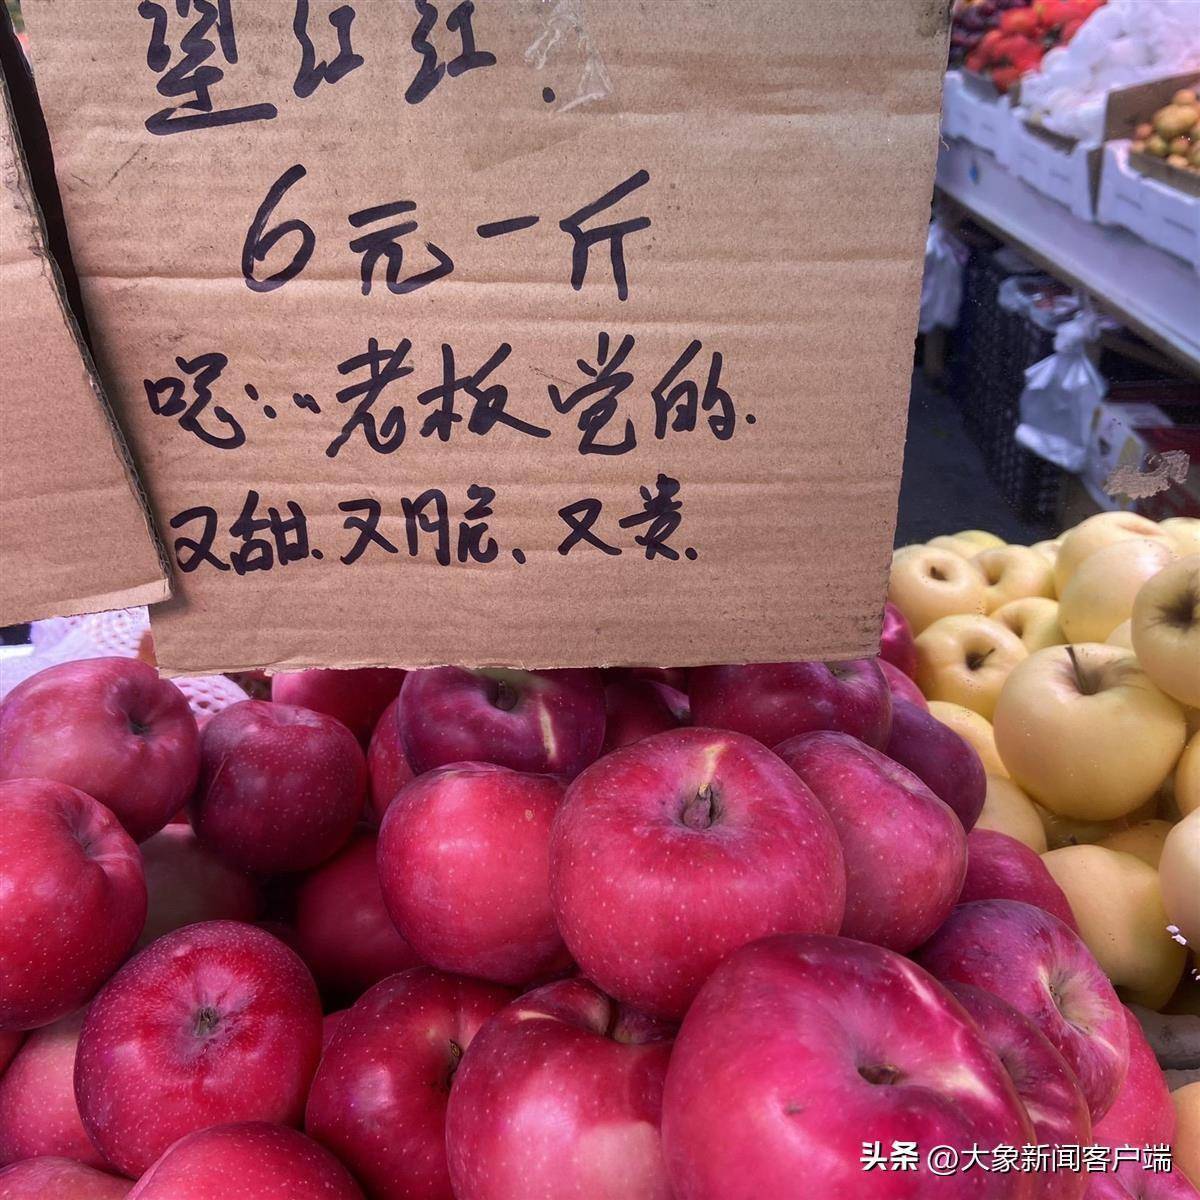 望红红.
6元一斤
呃:..老板觉的.
又甜.又脆、又贵.
头条 @大象新闻客户端